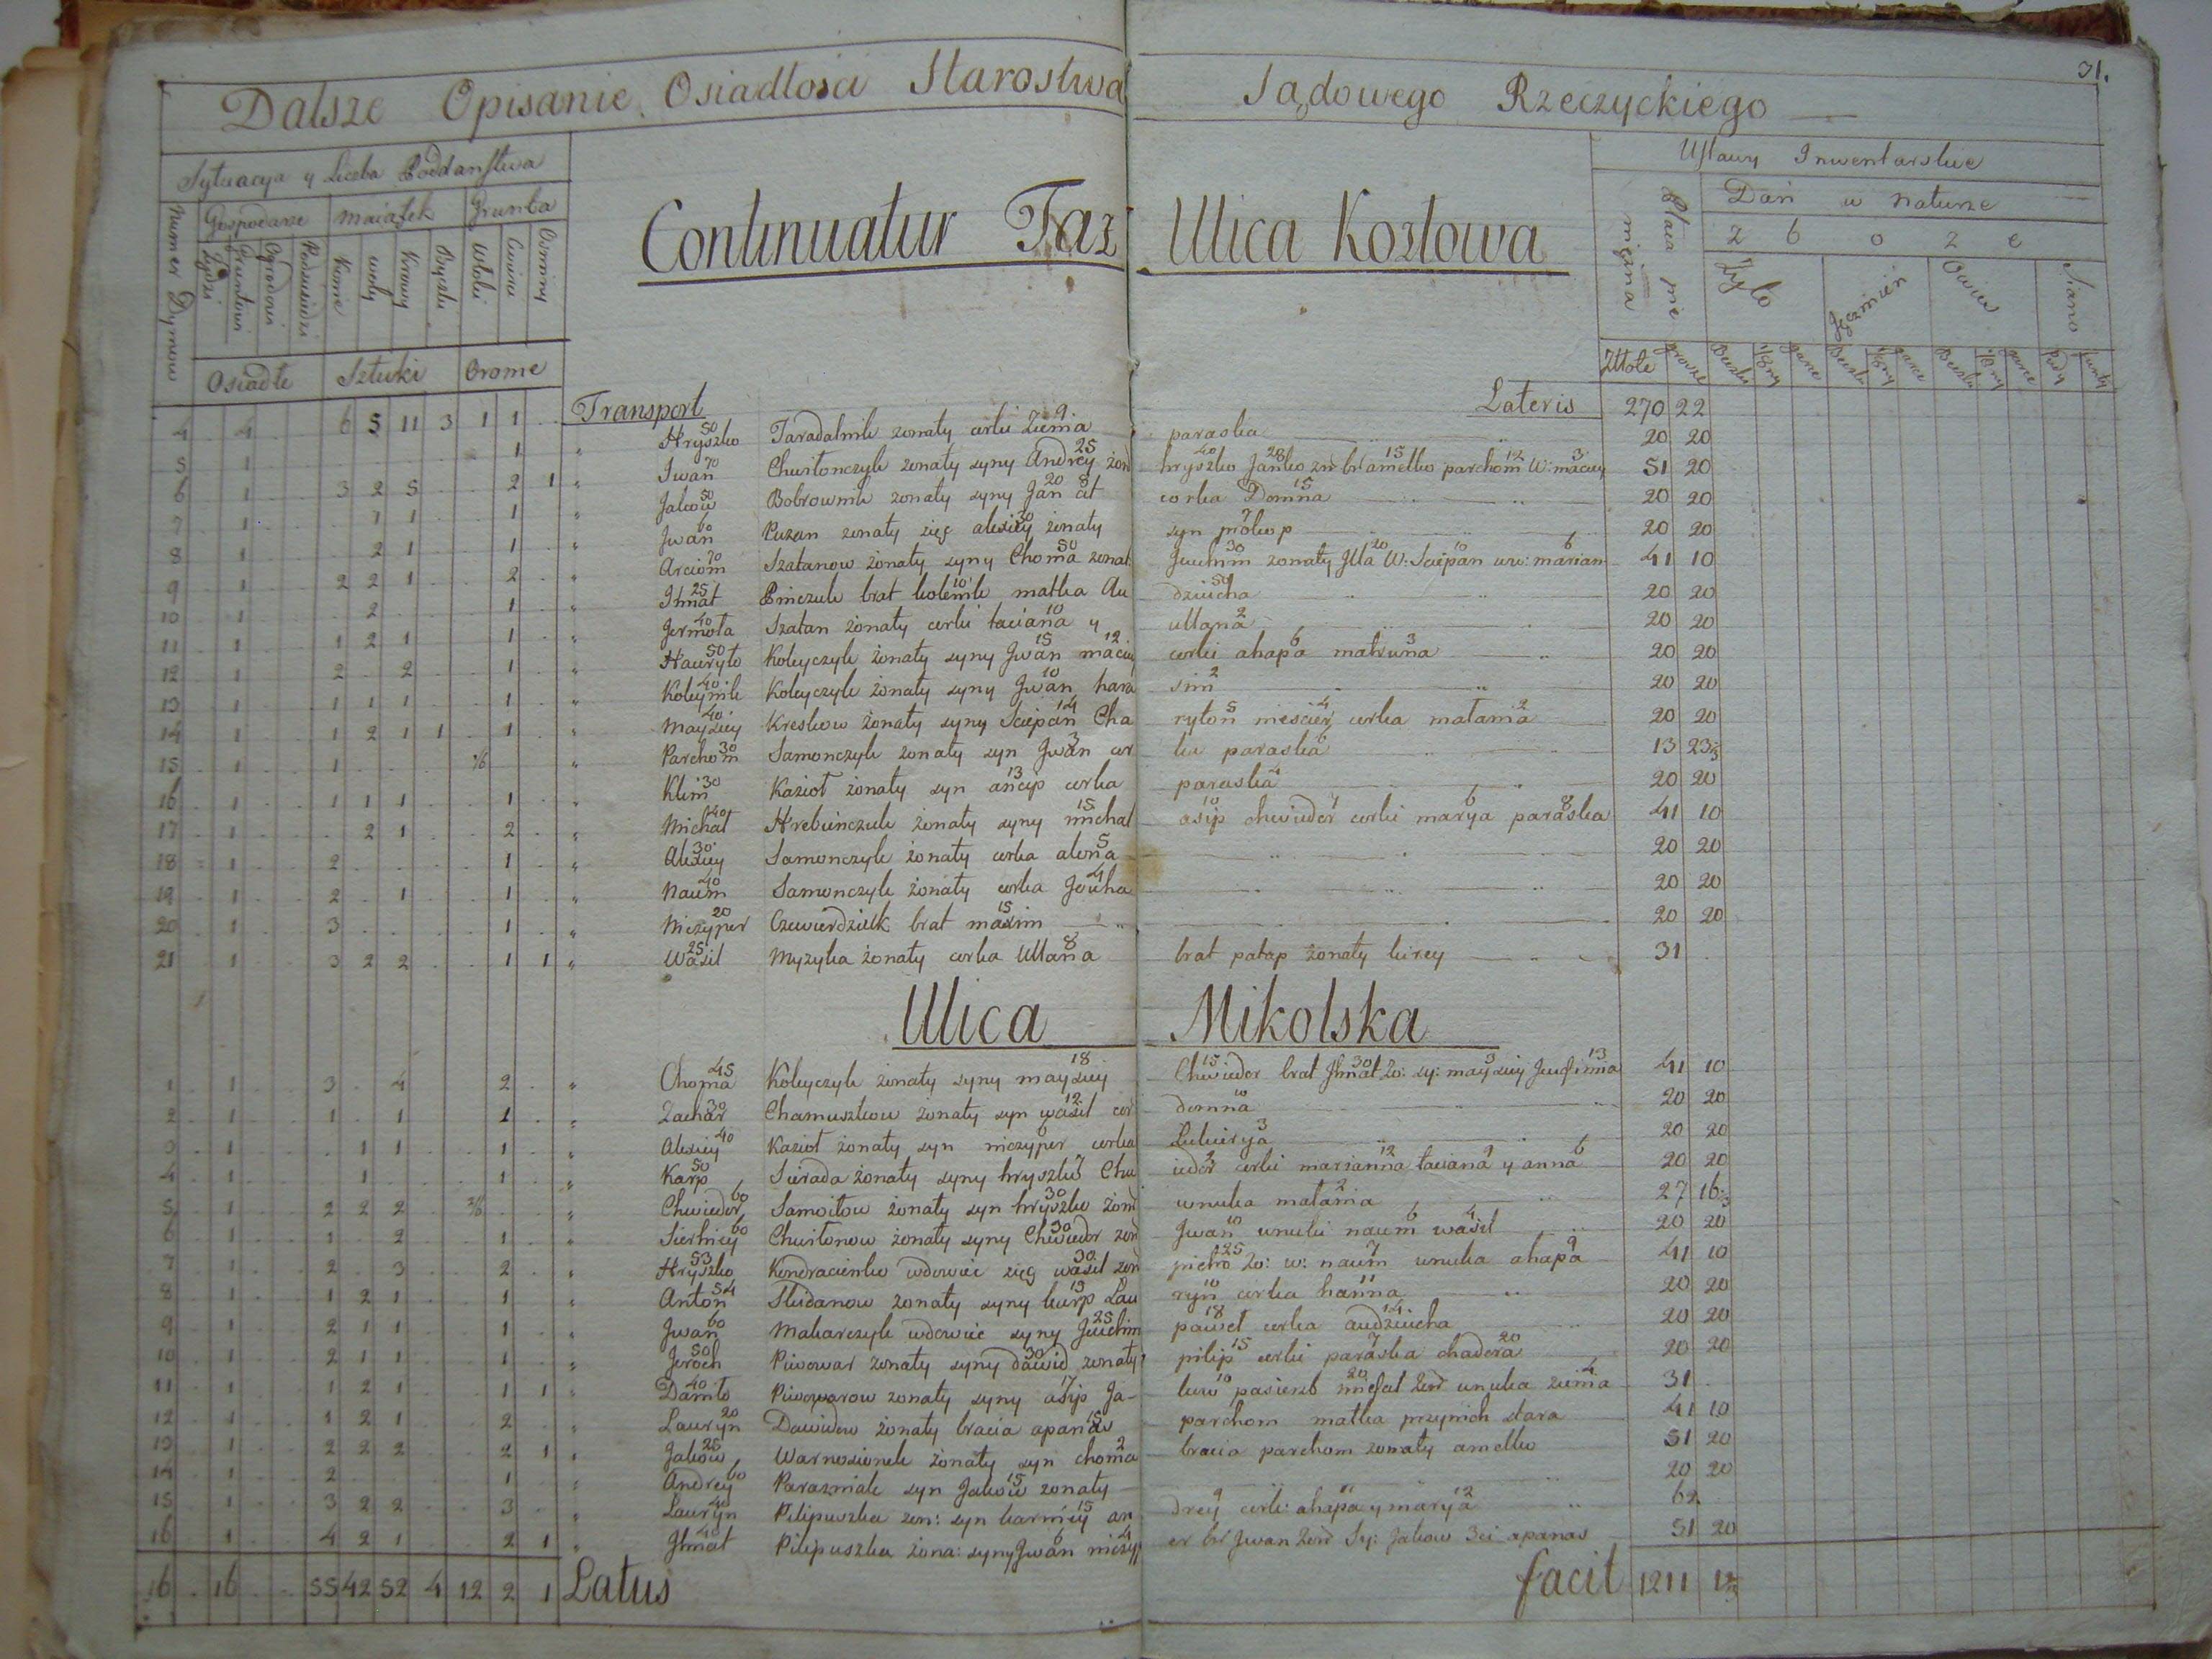 31.
Dalsze Opisanie Osiadłosci Starostwa Sądowego Rzeczyckiego
Sytuacya y Liczba Poddanstwa
Ustawy Inwentarskie
Numer Dymow
Gospodarze maiątek Grunta
Continuatur Taż Ulica Kozłowa
Dań w naturze
Płaca pie
niężna
Z b o z e
Żydzi Gruntowi Ogrodowi Podsusiedzi Konie woły Krowy Włoki Osminy
Żyto Jęczmień Owies Siano
Osiadłe Sztuki Orome
Złłote grosze
4 4 6 5 11 3 1 1 Transport Lateris 270 22
5 1 1 " Hryszko 50 Taradalnik żonaty corki Ziema 9 paraska 20 20
6 1 3 2 5 2 1 " Iwan 70 Chwitonczyk żonaty syny Andrey 25 żon hryszko 40 Janko 28 amelko 15 parchom 12 W: maciey 3 51 20
7 1 1 1 1 " Jakow 50 Bobrownik żonaty syny Jan 20 corka Domna 15 20 20
8 1 2 1 1 " Jwan 60 Puzan żonaty zięc alexiey 30 żonaty syn prokop 7 20 20
9 1 2 2 1 2 " Arciom 70 Szatanow żonaty syny Choma 50 zonat Jwchim 30 zonaty Jlla 20 W: Sciepan 10 wn: marian 6 41 10
10 1 2 1 " Ihnat 25 Pinczuk brat kolenik 10 matka Au dziucha 50 20 20
11 1 1 2 1 1 " Jermoła 40 Szatan żonaty corki taciana 10 y ullana 2 20 20
12 1 2 2 1 " Hawryło 50 Koleyczyk żonaty syny Jwan 15 maciey 12 corki ahapa 6 matruna 3 20 20
13 1 1 1 1 1 " Koleynik 40 Koleyczyk żonaty syny Jwan 10 hara sim 2 20 20
14 1 1 2 1 1 1 " Maysiey 40 Kreskow żonaty syny Sciepan 14 Cha ryton 5 niescier 4 corka matania 2 20 20
15 1 1 1/6 " Parchom 30 Samonczyk żonaty syn Jwan 3 cor ka paraska 6 13 23
16 1 1 1 1 1 " Klim 30 Kazioł żonaty syn ancip 13 corka paraska 20 20
17 1 2 1 2 " Michał 40 Hrebinczuk żonaty syny michał 15 asip 10 chwiedor 7 corki marya 6 paraska 8 41 10
18 1 2 1 " Alexiey 30 Samonczyk żonaty corka alona 5 20 20
19 1 2 1 1 " Naum 40 Samonczyk żonaty corka Jewha 4 20 20
20 1 3 1 " Niczyper 20 Czwierdziuk brat maxim 15 20 20
21 1 3 2 2 1 1 " Wasil 25 Myzyka żonaty corka Ullana 8 brat patap żonaty kirey 31
Ulica Mikolska
1 1 3 4 2 " Choma 45 Koleyczyk żonaty syny maysiey 18 Chwiedor 15 brat Jhnat 30 zo: sy: maysiey 3 Jewfimia 13 41 10
2 1 1 1 1 " Zachar 30 Chamuszkow żonaty syn wasil 12 cor domna 10 20 20
3 1 1 1 1 " Alexiey 40 Kazioł żonaty syn niczyper 6 corka Lukierya 3 20 20
4 1 1 1 " Karp 50 Sierada żonaty syny hryszko 7 Chw iedor 2 corki marianna 12 taciana 9 y anna 6 20 20
5 1 2 2 2 2/6 " Chwiedor 60 Samoiłow żonaty syn hryszko 30 żon wnuka matania 2 27 16
6 1 1 2 1 " Sierhiey 60 Chwitonow żonaty syny Chwiedor 30 zon Jwan 10 wnuki naum 6 wasil 4 20 20
7 1 2 3 2 " Hryszko 53 Kondracienko wdowiec zięc wasil 30 zon pietro 25 zo: w: naum 7 wnuka ahapa 9 41 10
8 1 1 2 1 1 " Anton 54 Studanow żonaty syny karp 19 Lau ryn 10 corka hanna 11 20 20
9 1 2 1 1 1 " Jwan 60 Makarczyk wdowiec syny Jwchim 25 paweł 18 corka audziucha 14 20 20
10 1 2 1 1 1 " Jeroch 50 Piwowar żonaty syny dawid 30 zonaty pilip 15 corki paraska 7 chadora 20 20 20
11 1 1 2 1 1 1 " Daniło 40 Piwowarow żonaty syny asip 17 Ja- kow 10 pasierzb 20 zon wnuka ziema 4 31
12 1 1 2 1 2 " Lauryn 20 Dawidow żonaty bracia apanas 15 parchom matka przynich stara 41 10
13 1 2 2 2 2 1 " Jakow 25 Warnosionek żonaty syn choma 2 bracia parchom żonaty amelko 51 20
14 1 2 1 " Andrey 60 Parazniak syn Jakow 15 zonaty 20 20
15 1 3 2 2 3 " Lauryn 40 Pilipuszka zon: syn karniey 15 an drey 9 cork: ahapa 11 y marya 12 62
16 1 4 2 1 2 1 " Jhnat 40 Pilipuszka żona: syny Jwan 6 niczyp 4 er br Jwan żon Sy: Jakow 3ci apanas 51 20
16 16 55 42 52 4 12 2 1 Latus facit 1211